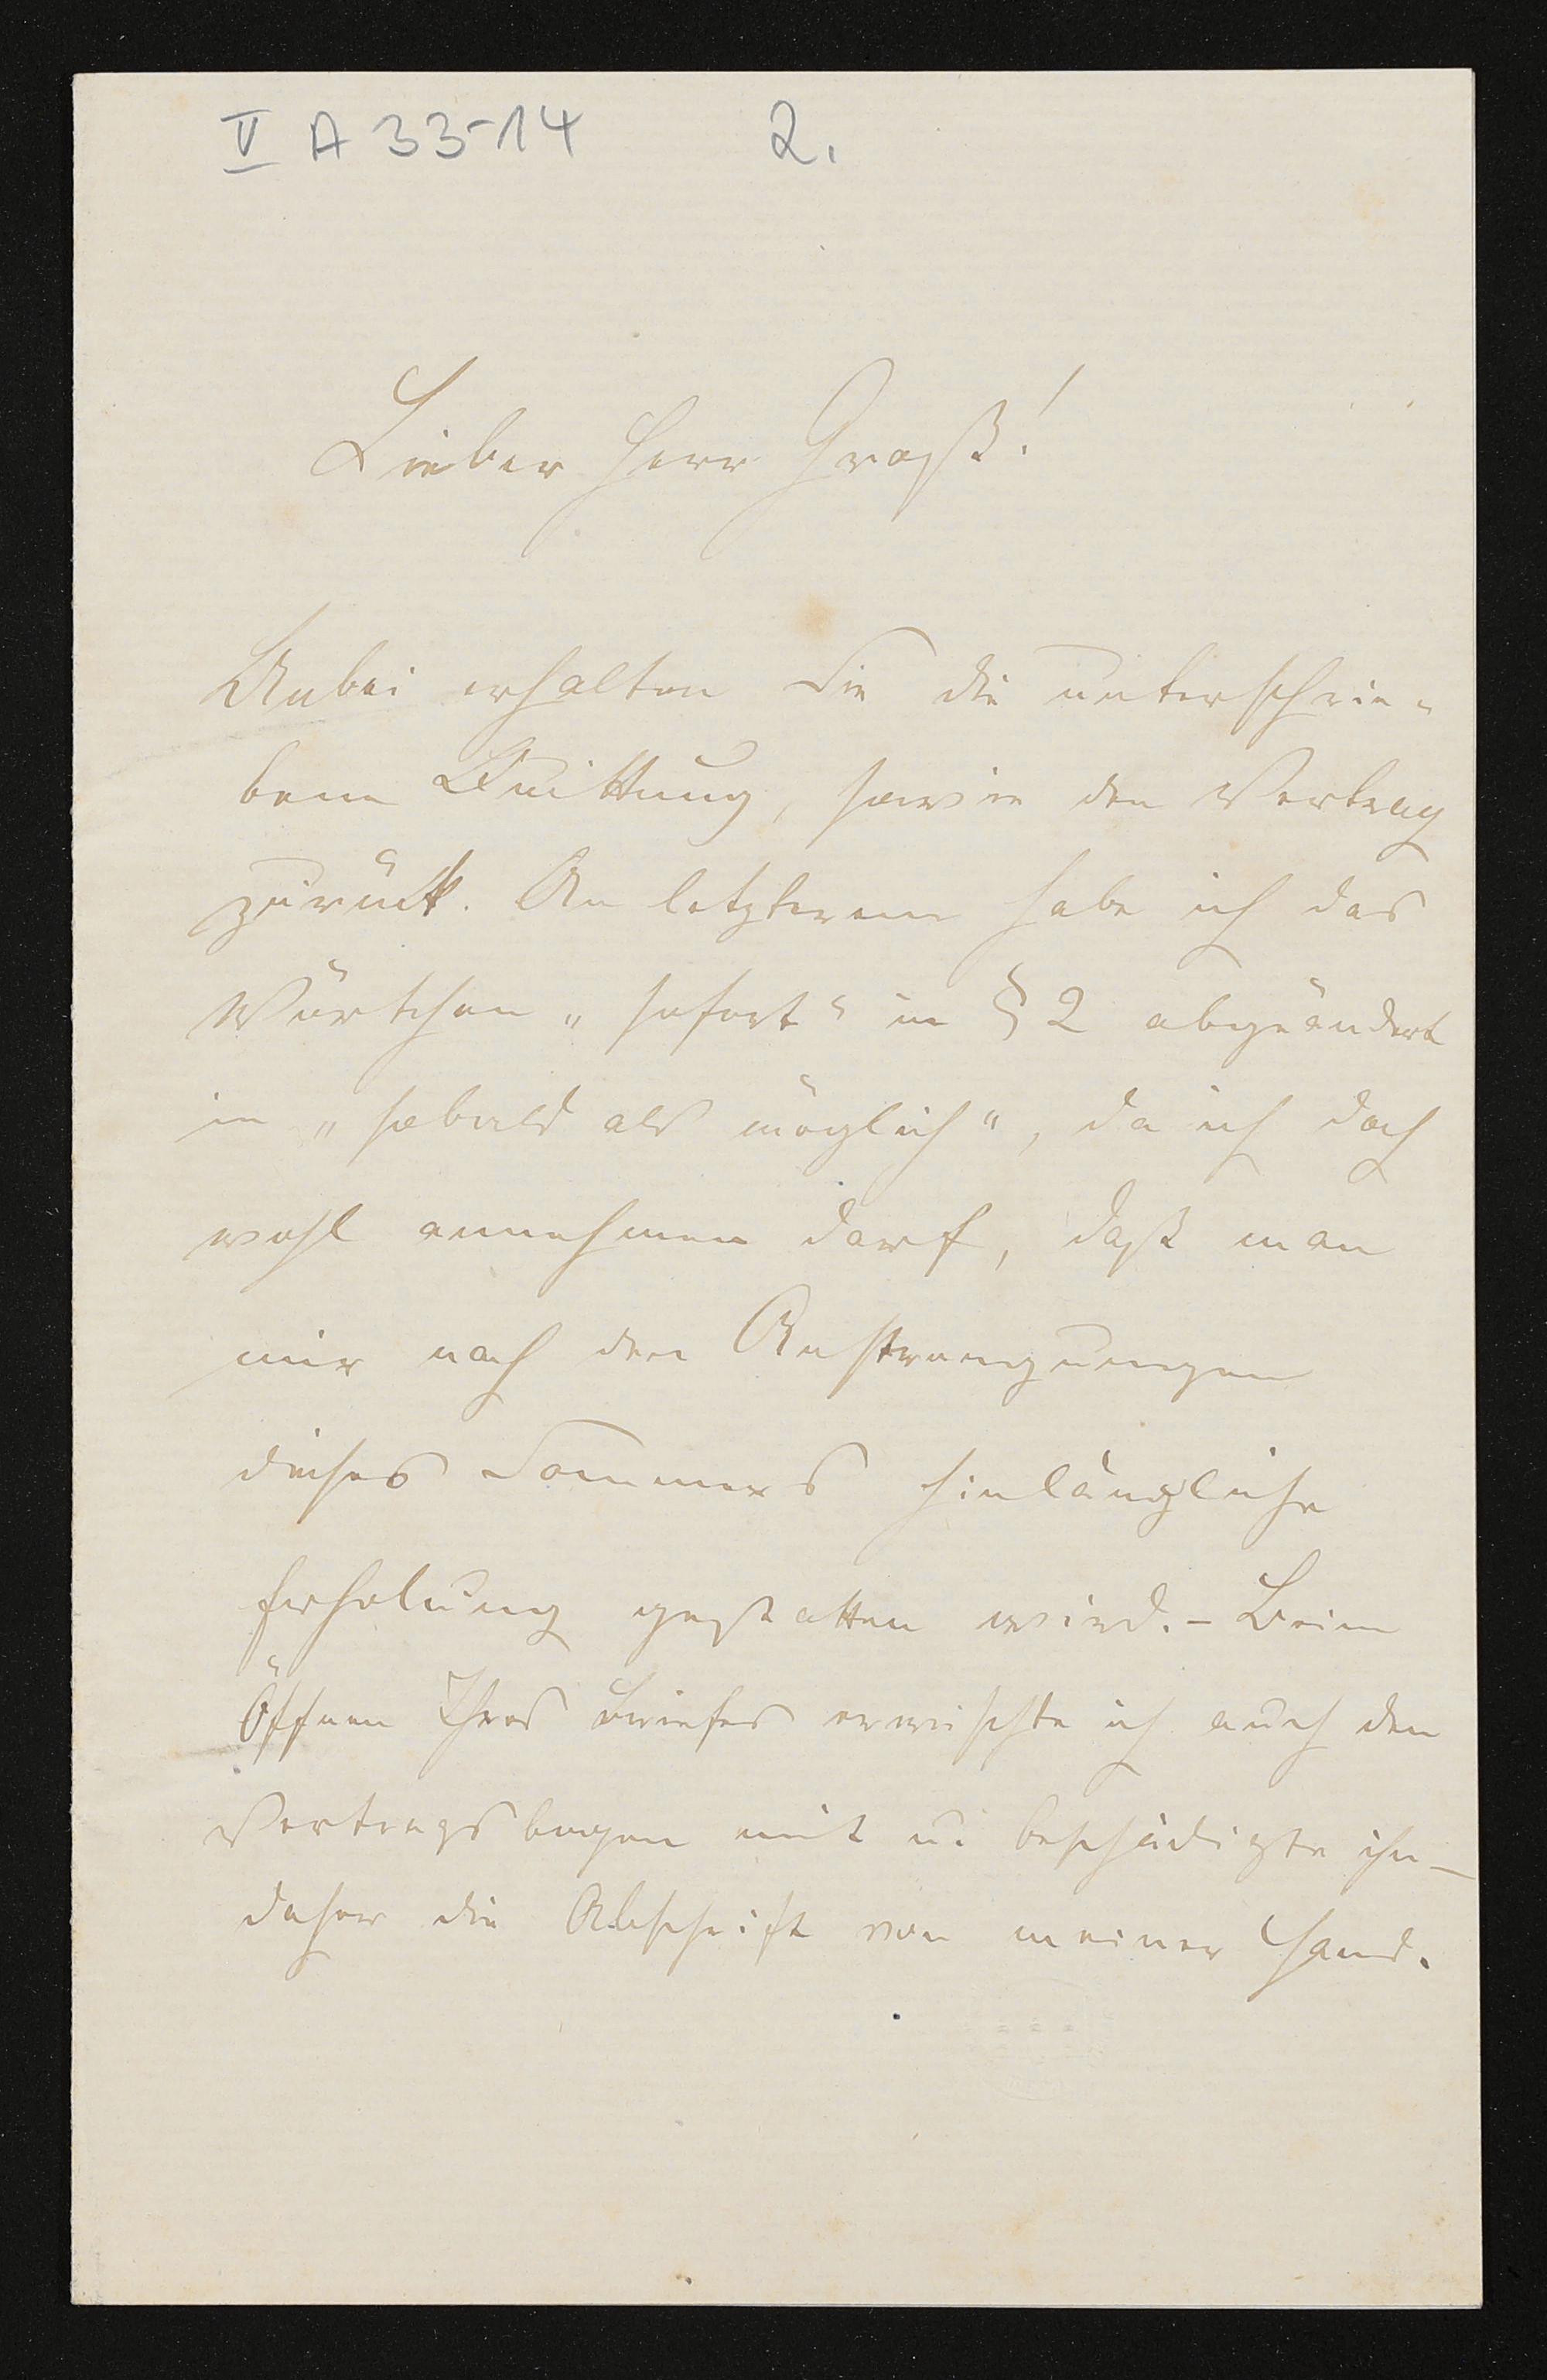 V A 33-14 2.
Lieber Herr Groß!
Anbei erhalten Sie die unterschrie-
bene Quittung, sowie den Vertrag
zurück. An letzterem habe ich das
Wörtchen „sofort“ in § 2 abgeändert
in „sobald als möglich“, da ich doch
wohl annehmen darf, daß man
mir nach den Anstrengungen
dieses Sommers hinlängliche
Erholung gestatten wird. – Beim
Öffnen Ihres Briefes erwischte ich auch den
Vertragsbogen mit u. beschädigte ihn –
daher die Abschrift von meiner Hand.